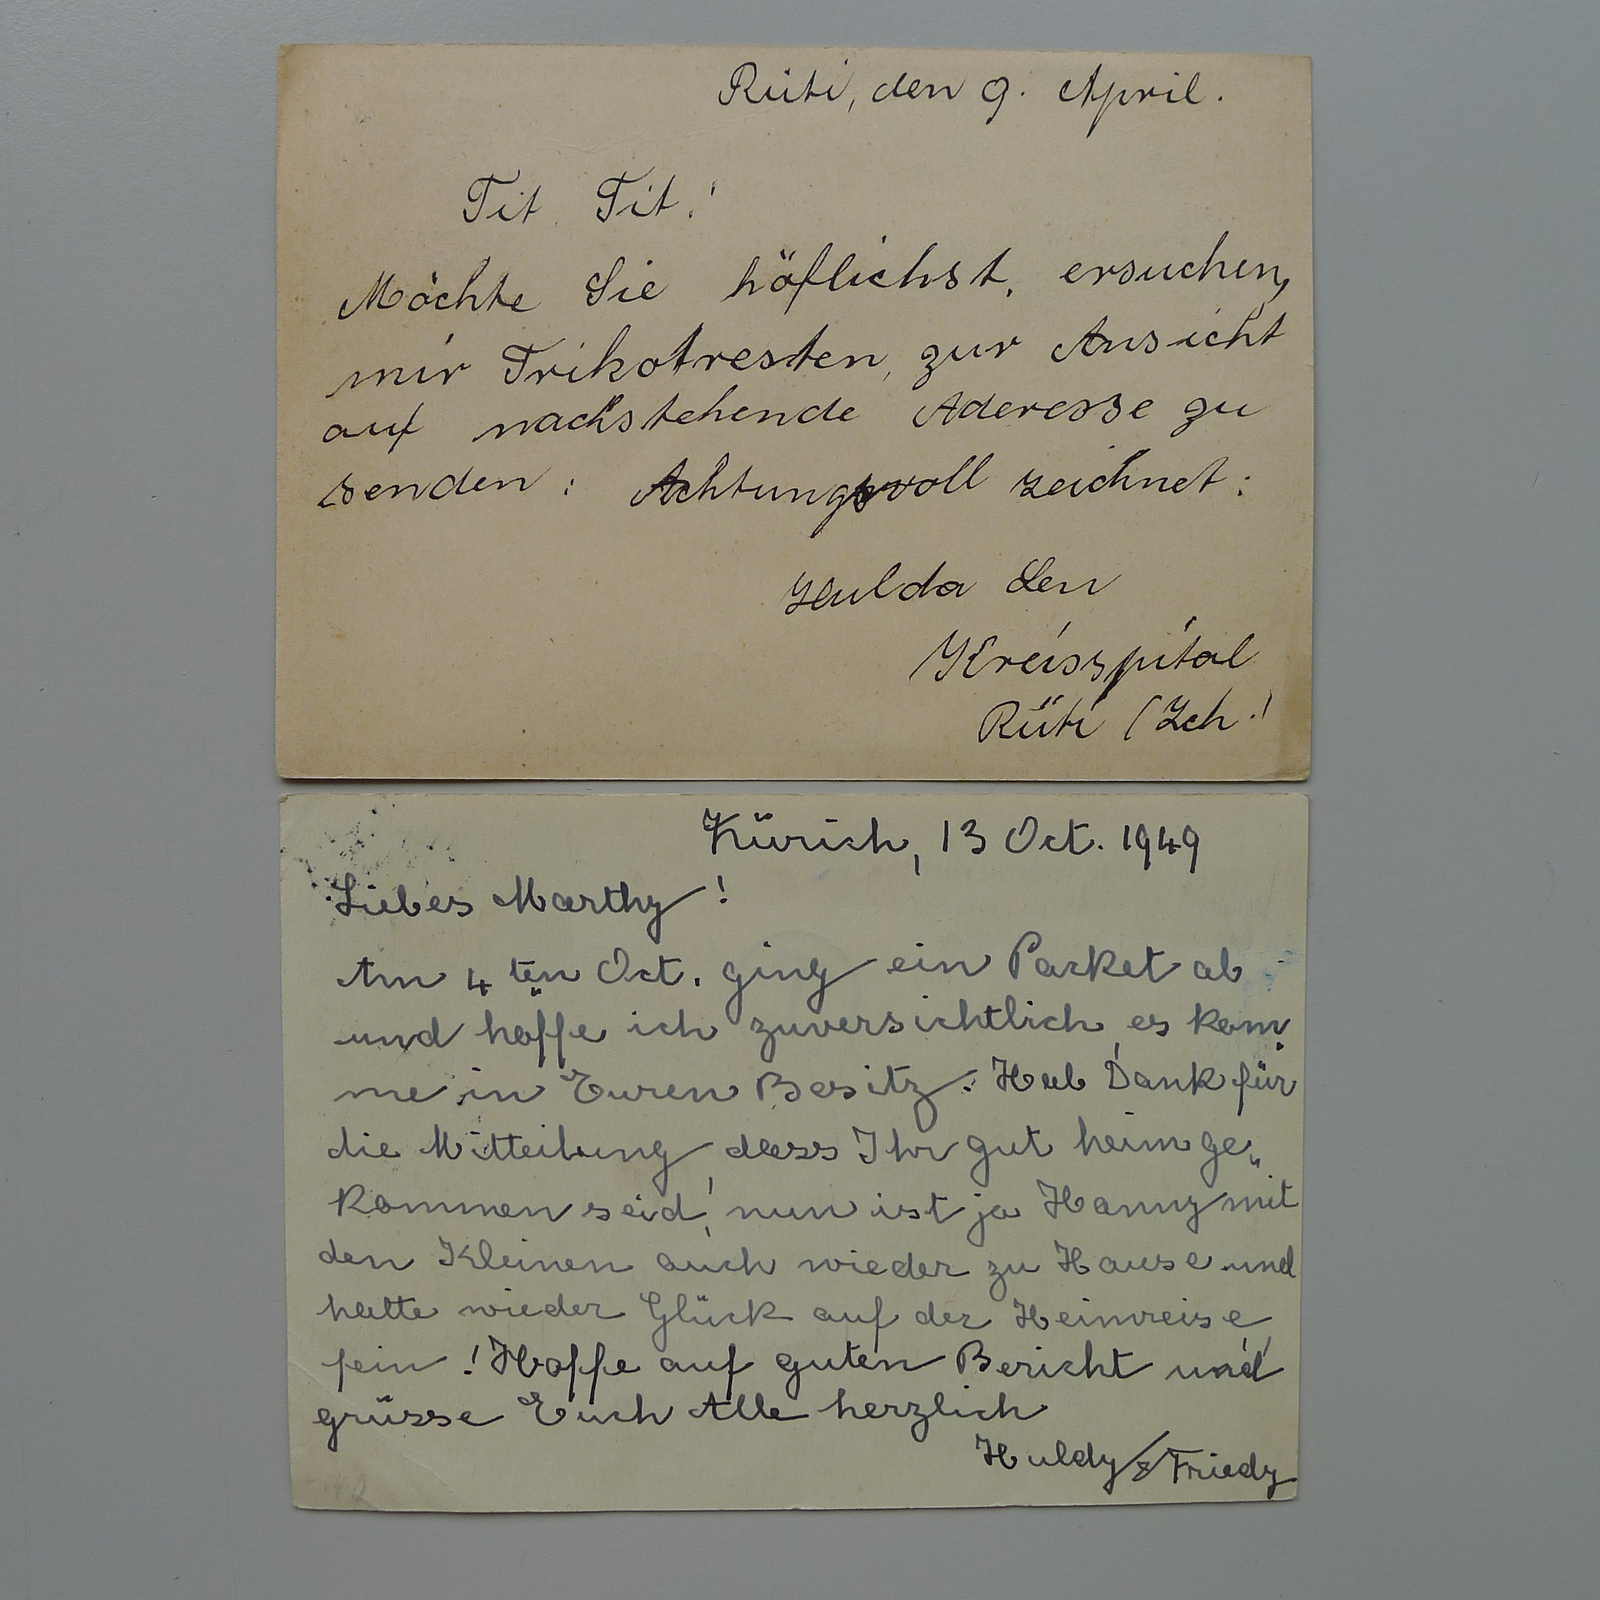 Rüti, den 9. April.
Tit. Tit.!
Möchte Sie höflichst, ersuchen,
mir Trikotresten, zur Ansicht
auf nachstehende Aderesse zu
senden: Achtungsvoll zeichnet:
Hulda
Kreisspital
Rüti (Zch.)
Zürich, 13 Oct. 1949
Liebes Marthy!
Am 4ten Oct. ging ein Packet ab
und hoffe ich zuversichtlich, es kom-
me in Euren Besitz. Hab Dank für
die Mitteilung, dass Ihr gut heimge„
kommen seid, nun ist ja Hanny mit
den Kleinen auch wieder zu Hause und
hatte wieder Glück auf der Heimreise
fein! Hoffe auf guten Bericht und
grüsse Euch Alle herzlich
Huldy & Friedy